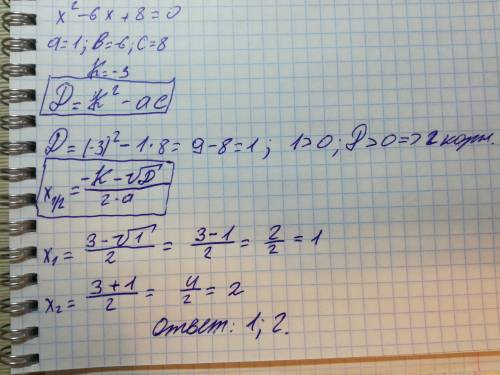 x² - 6x + 8 = 0
a=1; b=6, c=8
K=-3
D = K² - ac
D = (-3)² - 1·8 = 9-8=1; 1>0; D>0 => 2 корн.
x₁/₂ = (-K - √D) / (2·a)
x₁ = (3-√1) / 2 = (3-1) / 2 = 2/2 = 1
x₂ = (3+1) / 2 = 4/2 = 2
Ответ: 1; 2.